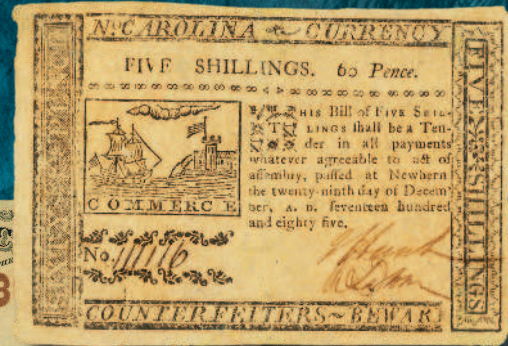 No CAROLINA CURRENCY
FIVE SHILLINGS. 60 Pence.
THIS Bill of FIVE SHIL-
LINGS ſhall be a Ten-
der in all payments
whatever agreeable to act of
aſſembly, paſſed at Newbern
the twenty-ninth day of Decem-
ber, A. D. ſeventeen hundred
and eighty five.
COMMERCE
No. 11116
COUNTERFEITERS~BEWAR
FIVE SHILLINGS